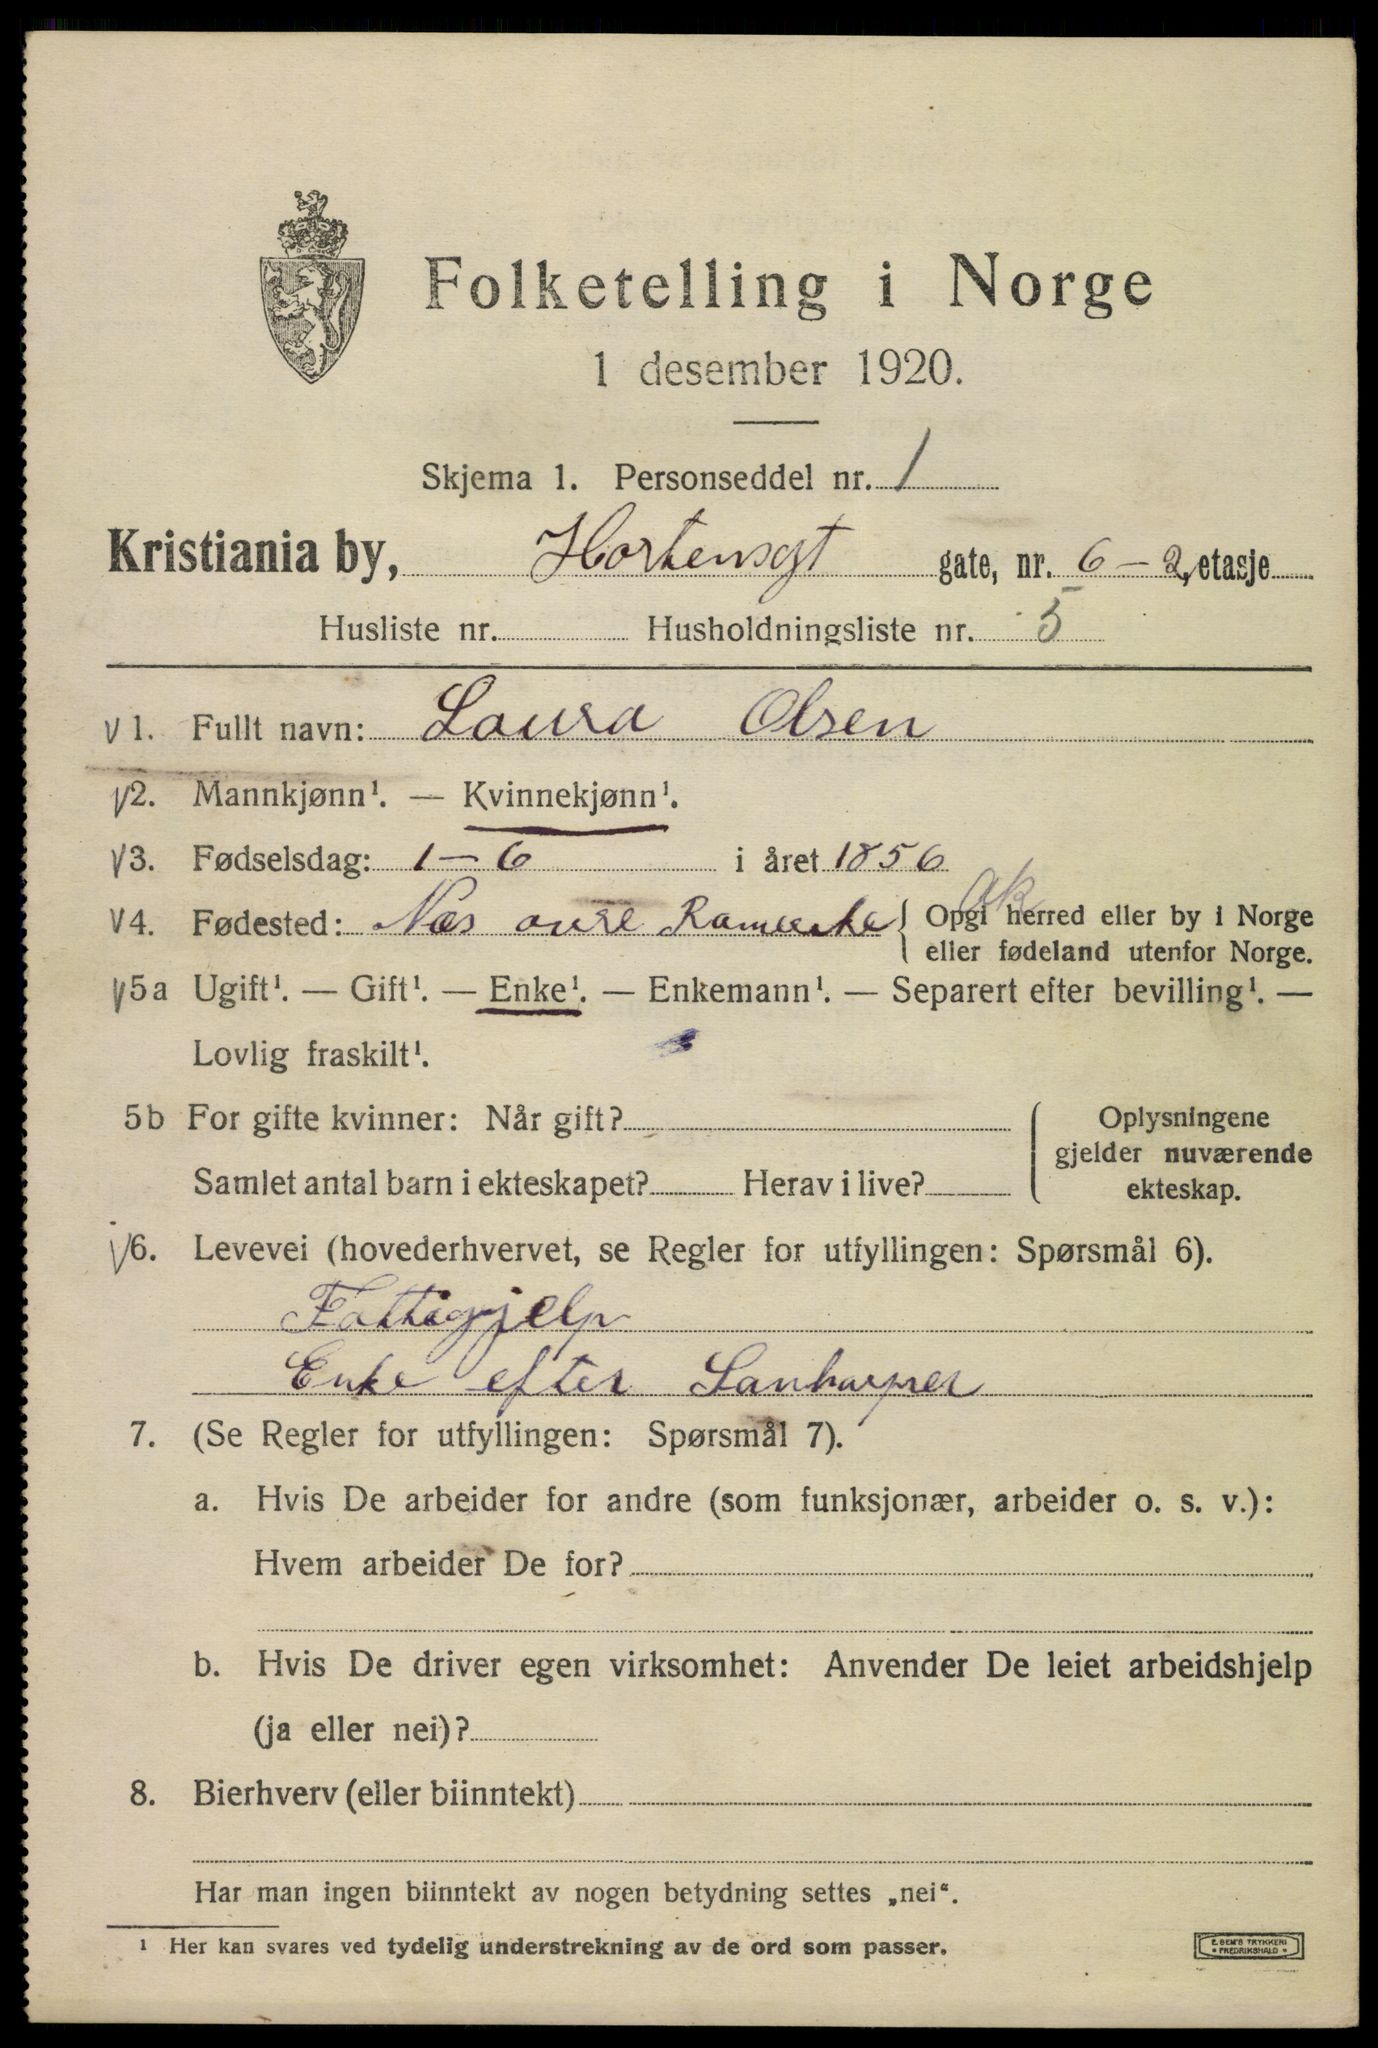 Folketelling i Norge
1 desember 1920.
Skjema 1. Personseddel nr. 1
Kristiania by, Hortensgt gate, nr. 6 - 2, etasje
Husliste nr. Husholdningsliste nr. 5
V 1. Fullt navn: Laura Olsen
V 2. Mannkjønn¹. — Kvinnekjønn¹.
V 3. Fødselsdag: 1 - 6 i året 1856
ak
V 4. Fødested: Næs { Opgi herred eller by i Norge
eller fødeland utenfor Norge.
V 5a Ugift¹. — Gift¹. — Enke¹. — Enkemann¹. — Separert efter bevilling¹. —
Lovlig fraskilt¹.
5b For gifte kvinner: Når gift? { Oplysningene
gjelder nuværende
Samlet antal barn i ekteskapet? Herav i live? ekteskap.
V 6. Levevei (hovederhvervet, se Regler for utfyllingen: Spørsmål 6).
Fattigjelp
Enke efter
7. (Se Regler for utfyllingen: Spørsmål 7).
a. Hvis De arbeider for andre (som funksjonær, arbeider o. s. v.):
Hvem arbeider De for?
b. Hvis De driver egen virksomhet: Anvender De leiet arbeidshjelp
(ja eller nei)?
8. Bierhverv (eller biinntekt)
Har man ingen biinntekt av nogen betydning settes „nei“.
¹ Her kan svares ved tydelig understrekning av de ord som passer.
E. SEM'S TRYKKERI
• FREDRIKSHALD •